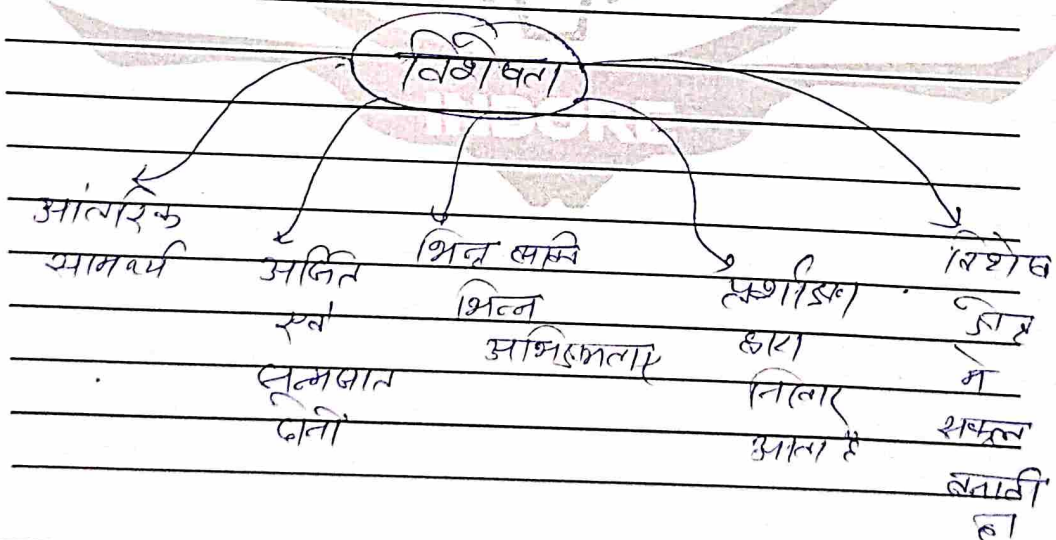 विशेषता
INDORE
आंतरिक
सामर्थ्य
अर्जित
एवं
जन्मजात
दोनों
भिन्न व्यक्ति
भिन्न
अभिक्षमताएं
प्रशिक्षण
द्वारा
निखार
आता है
विशेष
क्षेत्र
में
सफल
बनाती
है।